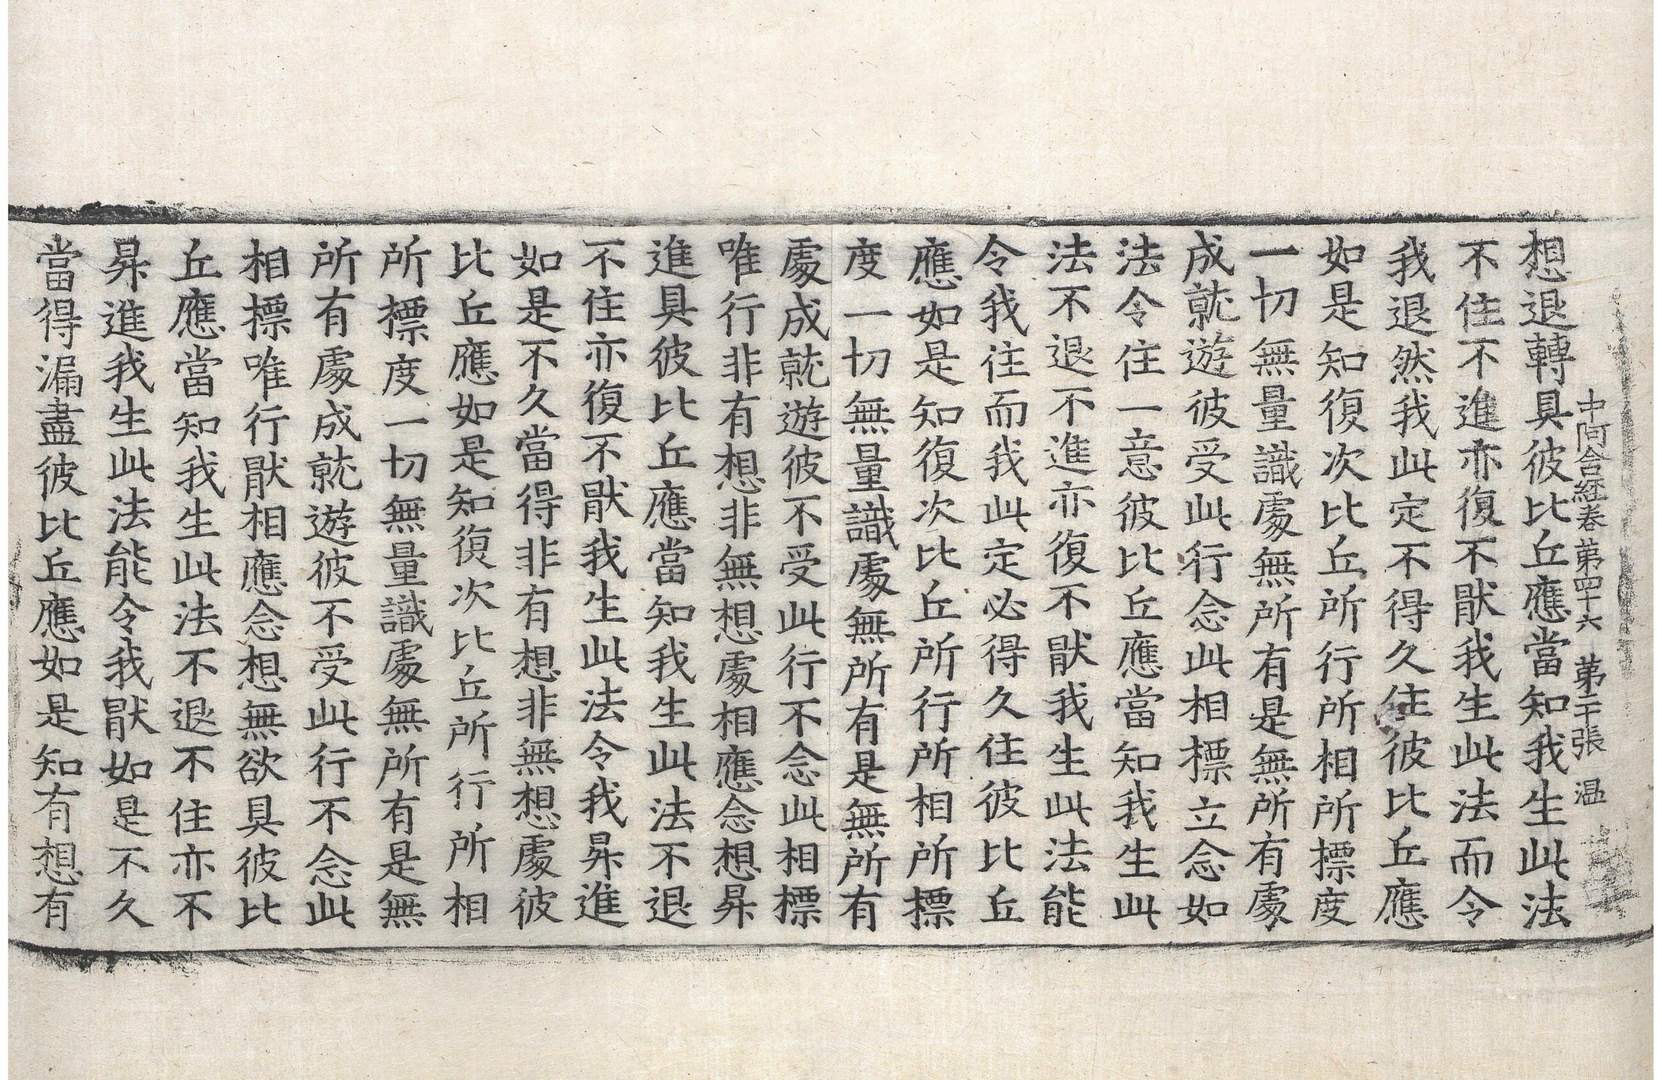 中阿含経卷第四十六 第二十張 温
想退轉具彼比丘應當知我生此法
不住不進亦復不猒我生此法而令
我退然我此定不得久住彼比丘應
如是知復次比丘所行所相所標度
一切無量識處無所有是無所有處
成就遊彼受此行念此相標立念如
法令住一意彼比丘應當知我生此
法不退不進亦復不猒我生此法能
令我住而我此定必得久住彼比丘
應如是知復次比丘所行所相所標
度一切無量識處無所有是無所有
處成就遊彼不受此行不念此相標
唯行非有想非無想處相應念想昇
進具彼比丘應當知我生此法不退
不住亦復不猒我生此法令我昇進
如是不久當得非有想非無想處彼
比丘應如是知復次比丘所行所相
所標度一切無量識處無所有是無
所有處成就遊彼不受此行不念此
相標唯行猒相應念想無欲具彼比
丘應當知我生此法不退不住亦不
昇進我生此法能令我猒如是不久
當得漏盡彼比丘應如是知有想有